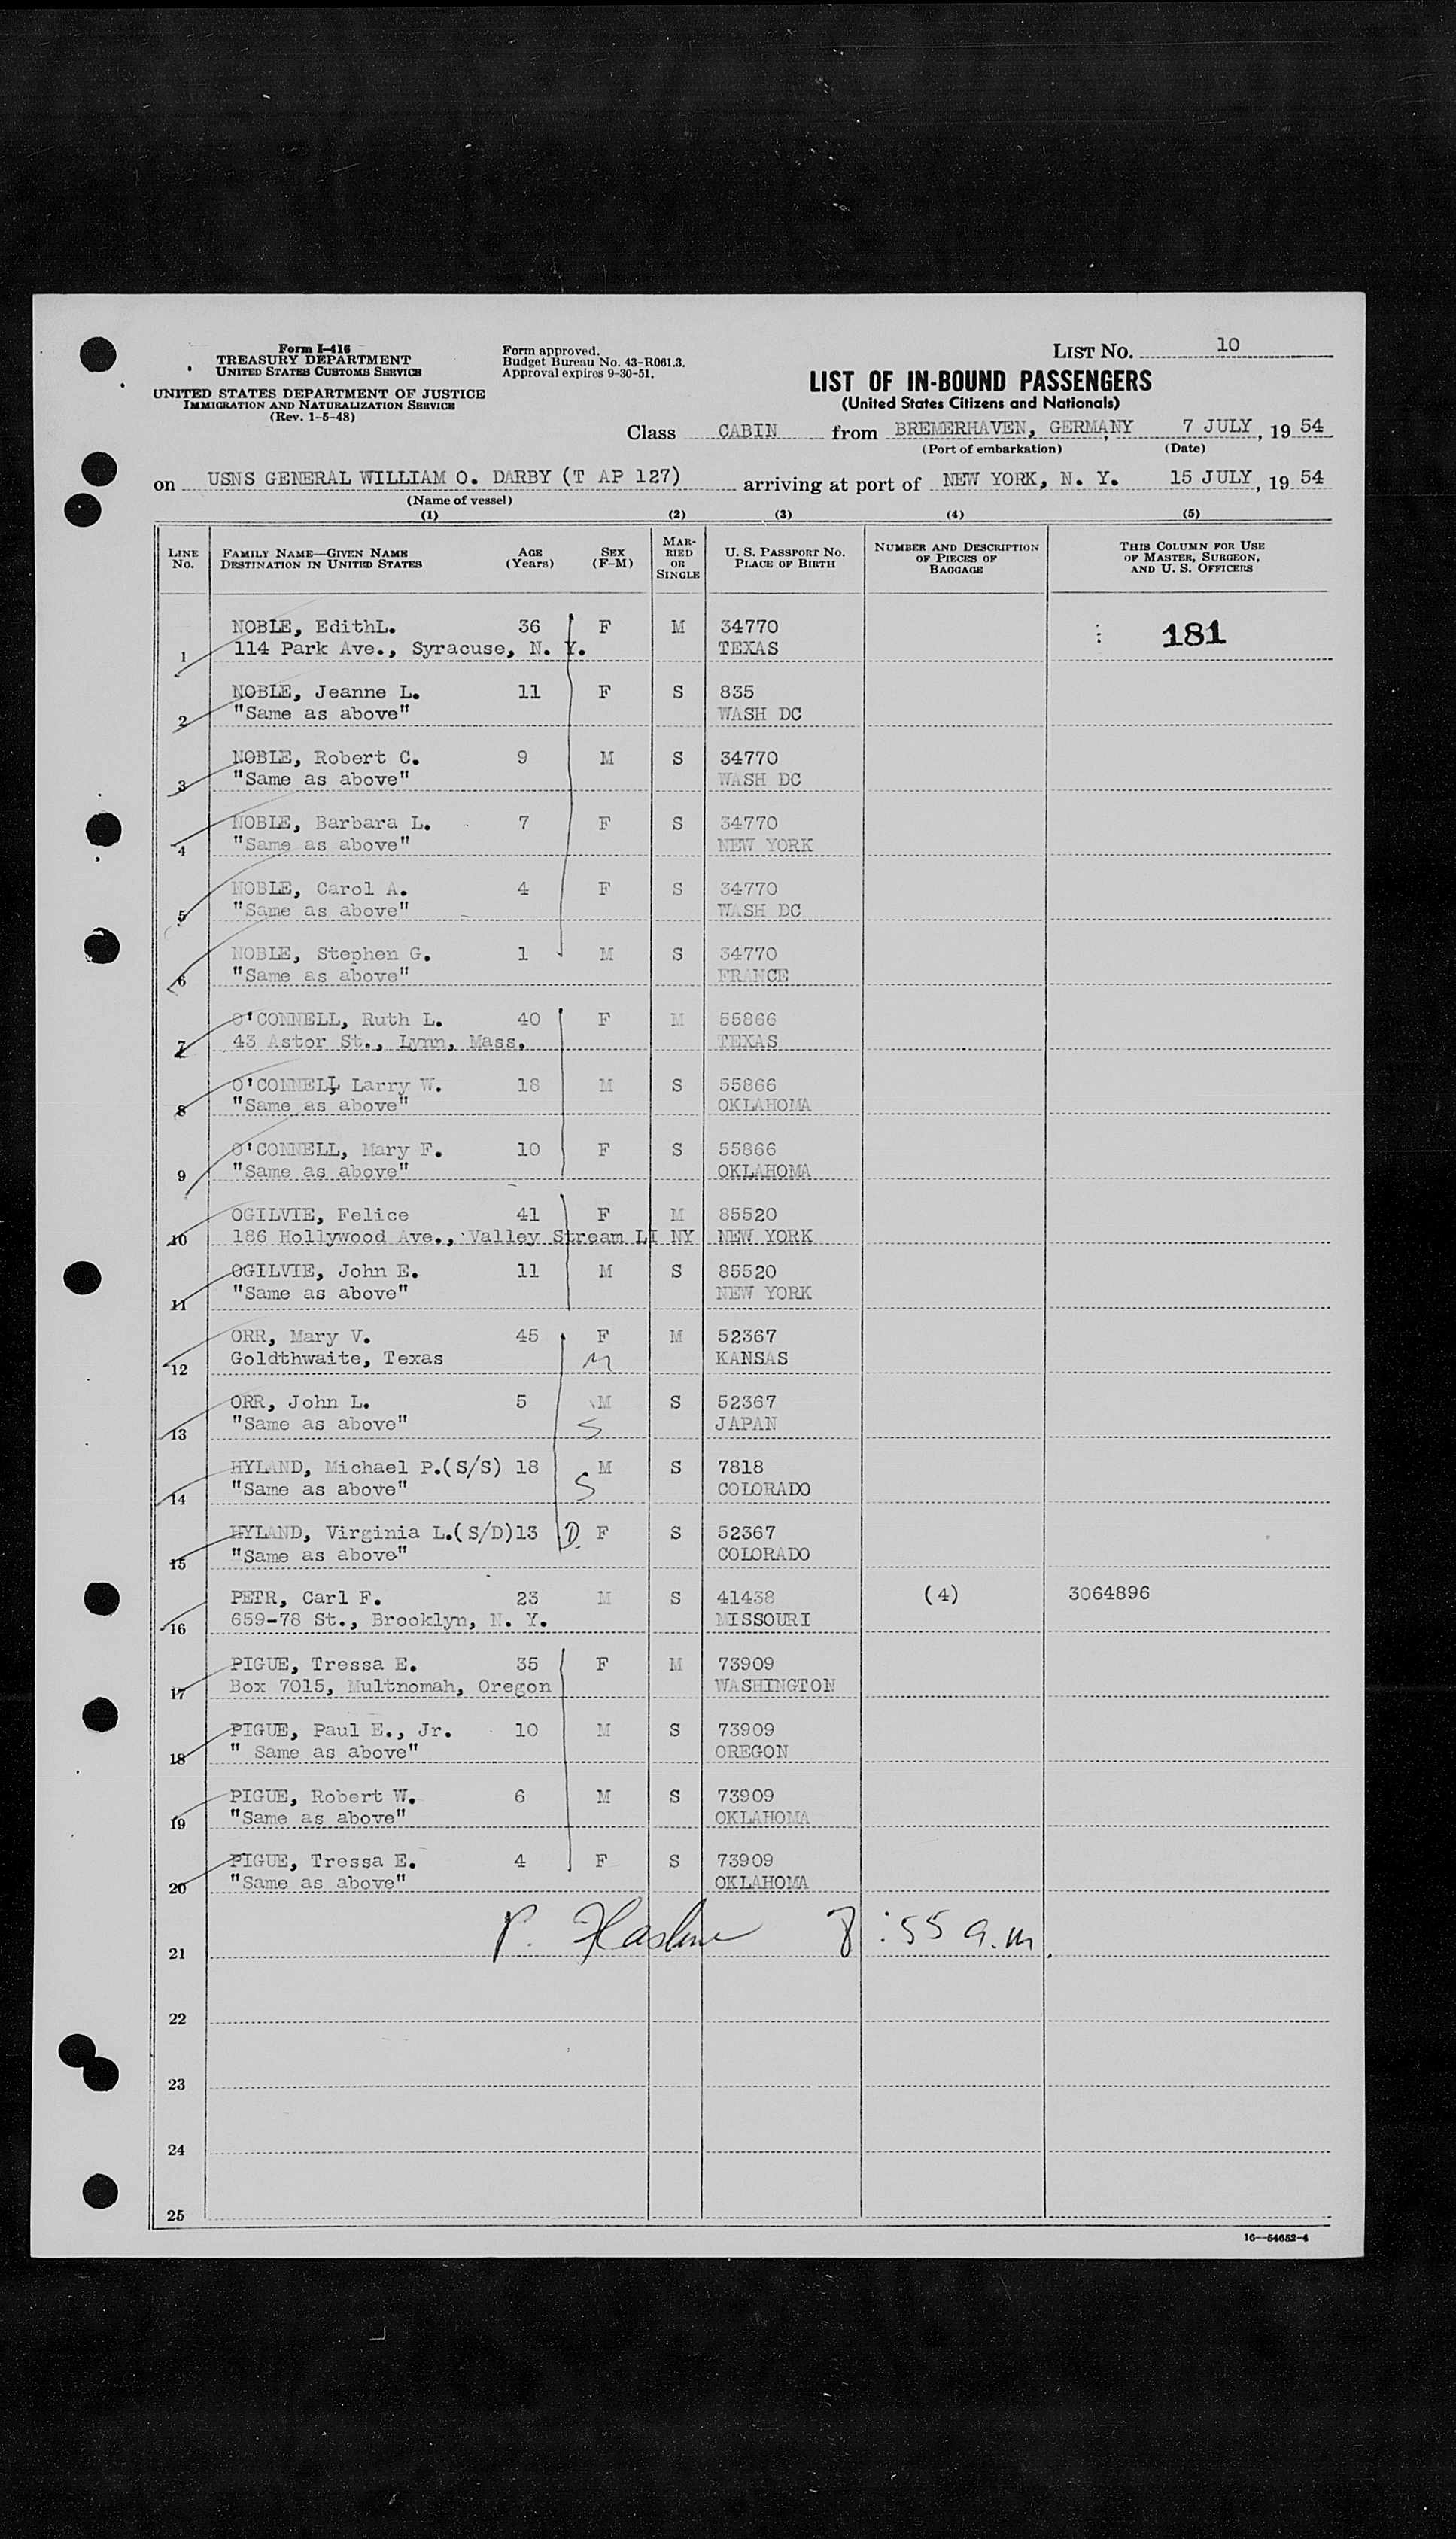 Form I-416
TREASURY DEPARTMENT
UNITED STATES CUSTOMS SERVICE
UNITED STATES DEPARTMENT OF JUSTICE
IMMIGRATION AND NATURALIZATION SERVICE
(Rev. 1-5-48)
Form approved.
Budget Bureau No. 43-R061.3.
Approval expires 9-30-51.
LIST NO. 10
LIST OF IN-BOUND PASSENGERS
(United States Citizens and Nationals)
Class CABIN from BREMERHAVEN, GERMANY 7 JULY, 19 54
(Port of embarkation) (Date)
on USNS GENERAL WILLIAM O. DARBY (T AP 127) arriving at port of NEW YORK, N. Y. 15 JULY, 19 54
(Name of vessel)
(1) (2) (3) (4) (5)
LINE NO. FAMILY NAME—GIVEN NAME DESTINATION IN UNITED STATES AGE (Years) SEX (F-M) MARRIED OR SINGLE U. S. PASSPORT NO. PLACE OF BIRTH NUMBER AND DESCRIPTION OF PIECES OF BAGGAGE THIS COLUMN FOR USE OF MASTER, SURGEON, AND U. S. OFFICERS
NOBLE, EdithL. 36 F M 34770 181
1 114 Park Ave., Syracuse, N. Y. TEXAS
NOBLE, Jeanne L. 11 F S 835
2 "Same as above" WASH DC
NOBLE, Robert C. 9 M S 34770
3 "Same as above" WASH DC
NOBLE, Barbara L. 7 F S 34770
4 "Same as above" NEW YORK
NOBLE, Carol A. 4 F S 34770
5 "Same as above" WASH DC
NOBLE, Stephen G. 1 M S 34770
6 "Same as above" FRANCE
O'CONNELL, Ruth L. 40 F M 55866
7 43 Astor St., Lynn, Mass. TEXAS
O'CONNELL, Larry W. 18 M S 55866
8 "Same as above" OKLAHOMA
O'CONNELL, Mary F. 10 F S 55866
9 "Same as above" OKLAHOMA
OGILVIE, Felice 41 F M 85520
10 186 Hollywood Ave., Valley Stream LI NY NEW YORK
OGILVIE, John E. 11 M S 85520
11 "Same as above" NEW YORK
ORR, Mary V. 45 F M 52367
12 Goldthwaite, Texas M KANSAS
ORR, John L. 5 M S 52367
13 "Same as above" S JAPAN
HYLAND, Michael P.(S/S) 18 M S 7818
14 "Same as above" S COLORADO
HYLAND, Virginia L.(S/D) 13 D. F S 52367
15 "Same as above" COLORADO
PETR, Carl F. 23 M S 41438 (4) 3064896
16 659-78 St., Brooklyn, N. Y. MISSOURI
PIGUE, Tressa E. 35 F M 73909
17 Box 7015, Multnomah, Oregon WASHINGTON
PIGUE, Paul E., Jr. 10 M S 73909
18 " Same as above" OREGON
PIGUE, Robert W. 6 M S 73909
19 "Same as above" OKLAHOMA
PIGUE, Tressa E. 4 F S 73909
20 "Same as above" OKLAHOMA
21 P. :55 a.m.
22
23
24
25
16—54652-4